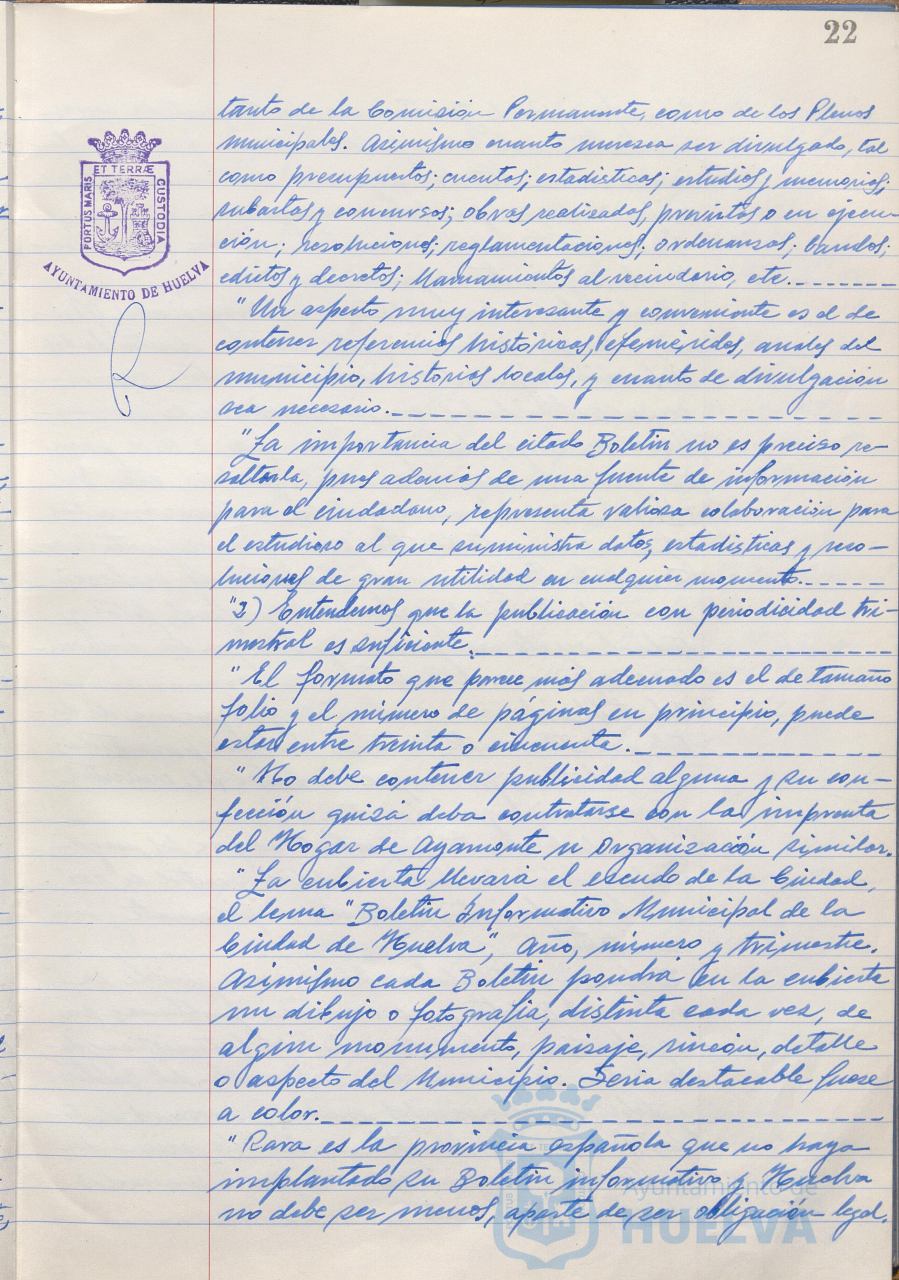 22
tanto de la Comisión Permanente, como de los Plenos
municipales. Asimismo cuanto merezca ser divulgado, tal
como presupuestos; cuentas; estadísticas; estudios y memorias;
subastas y concursos; obras realizadas, previstas o en ejecu-
ción; resoluciones; reglamentaciones; ordenanzas; bandos;
edictos y decretos; llamamientos al vecindario, etc.
"Un aspecto muy interesante y conveniente es el de
contener referencias históricas, efemérides, anales del
municipio, historias locales, y cuanto de divulgación
sea necesario.
"La importancia del citado Boletín no es preciso re-
saltarla, pues además de una fuente de información
para el ciudadano, representa valiosa colaboración para
el estudioso al que suministra datos, estadísticas y reso-
luciones de gran utilidad en cualquier momento.
"2) Entendemos que la publicación con periodicidad tri-
mestral es suficiente.
"El formato que parece más adecuado es el de tamaño
folio y el número de páginas en principio, puede
estar entre treinta o cincuenta.
"No debe contener publicidad alguna y su con-
fección quizá deba contratarse con la imprenta
del Hogar de Ayamonte u Organización similar.
"La cubierta llevará el escudo de la Ciudad,
el lema "Boletín Informativo Municipal de la
Ciudad de Huelva", Año, número y trimestre.
Asimismo cada Boletín pondrá en la cubierta
un dibujo o fotografía, distinta cada vez, de
algún monumento, paisaje, rincón, detalle
o aspecto del Municipio. Sería destacable fuese
a color.
"Rara es la provincia española que no haya
implantado su Boletín informativo y Huelva
no debe ser menos, aparte de ser obligación legal.
PORTUS MARIS
ET TERRÆ
CUSTODIA
AYUNTAMIENTO DE HUELVA
Ayuntamiento de
HUELVA